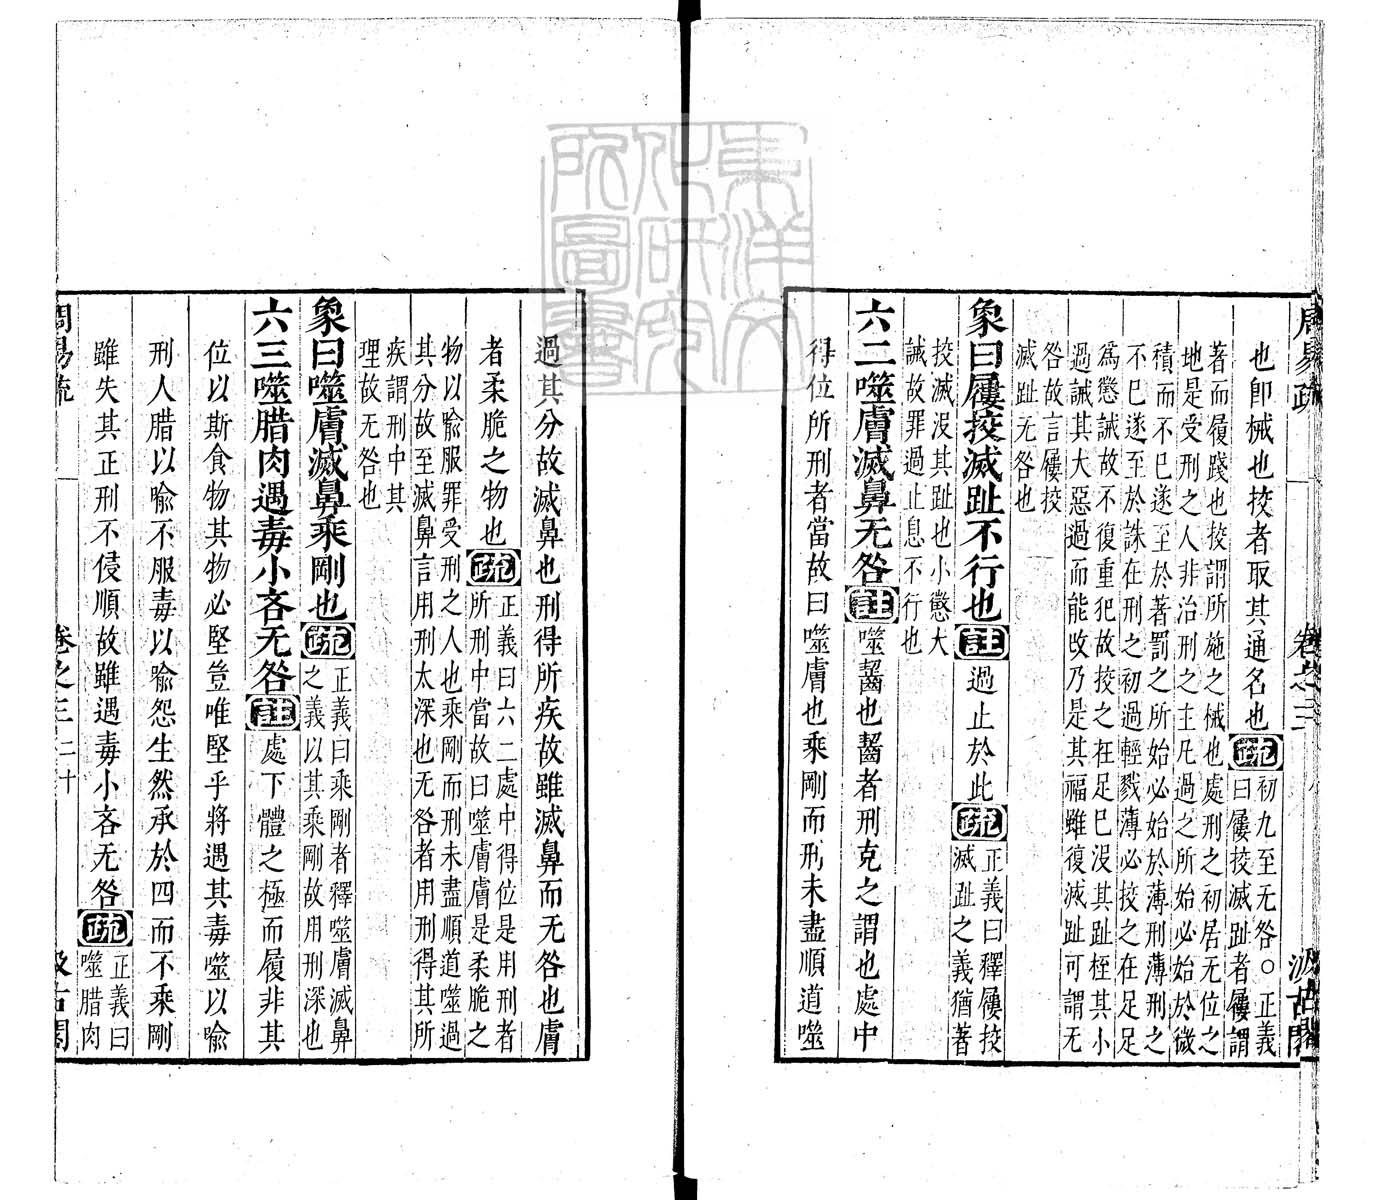 周易疏 卷之三 汲古閣
也卽械也挍者取其通名也疏初九至无咎○正義
曰屨挍滅趾者屨謂
著而履踐也挍謂所施之械也處刑之初居无位之
地是受刑之人非治刑之主凡過之所始必始於微
積而不已遂至於著罰之所始必始於薄刑薄刑之
不已遂至於誅在刑之初過輕戮薄必挍之在足足
爲懲誡故不復重犯故挍之在足已沒其趾桎其小
過誡其大惡過而能改乃是其福雖復滅趾可謂无
咎故言屨挍
滅趾无咎也
象曰屨挍滅趾不行也註過止於此疏正義曰釋屨挍
滅趾之義猶著
挍滅沒其趾也小懲大
誡故罪過止息不行也
六二噬膚滅鼻无咎註噬齧也齧者刑克之謂也處中
得位所刑者當故曰噬膚也乘剛而刑未盡順道噬
過其分故滅鼻也刑得所疾故雖滅鼻而无咎也膚
者柔脆之物也疏正義曰六二處中得位是用刑者
所刑中當故曰噬膚膚是柔脆之
物以喻服罪受刑之人也乘剛而刑未盡順道噬過
其分故至滅鼻言用刑太深也无咎者用刑得其所
疾謂刑中其
理故无咎也
象曰噬膚滅鼻乘剛也疏正義曰乘剛者釋噬膚滅鼻
之義以其乘剛故用刑深也
六三噬腊肉遇毒小吝无咎註處下體之極而履非其
位以斯食物其物必堅豈唯堅乎將遇其毒噬以喻
刑人腊以喻不服毒以喻怨生然承於四而不乘剛
雖失其正刑不侵順故雖遇毒小吝无咎疏正義曰
噬腊肉
周易疏 卷之三 二十 汲古閣
東洋文
化研究
所圖書